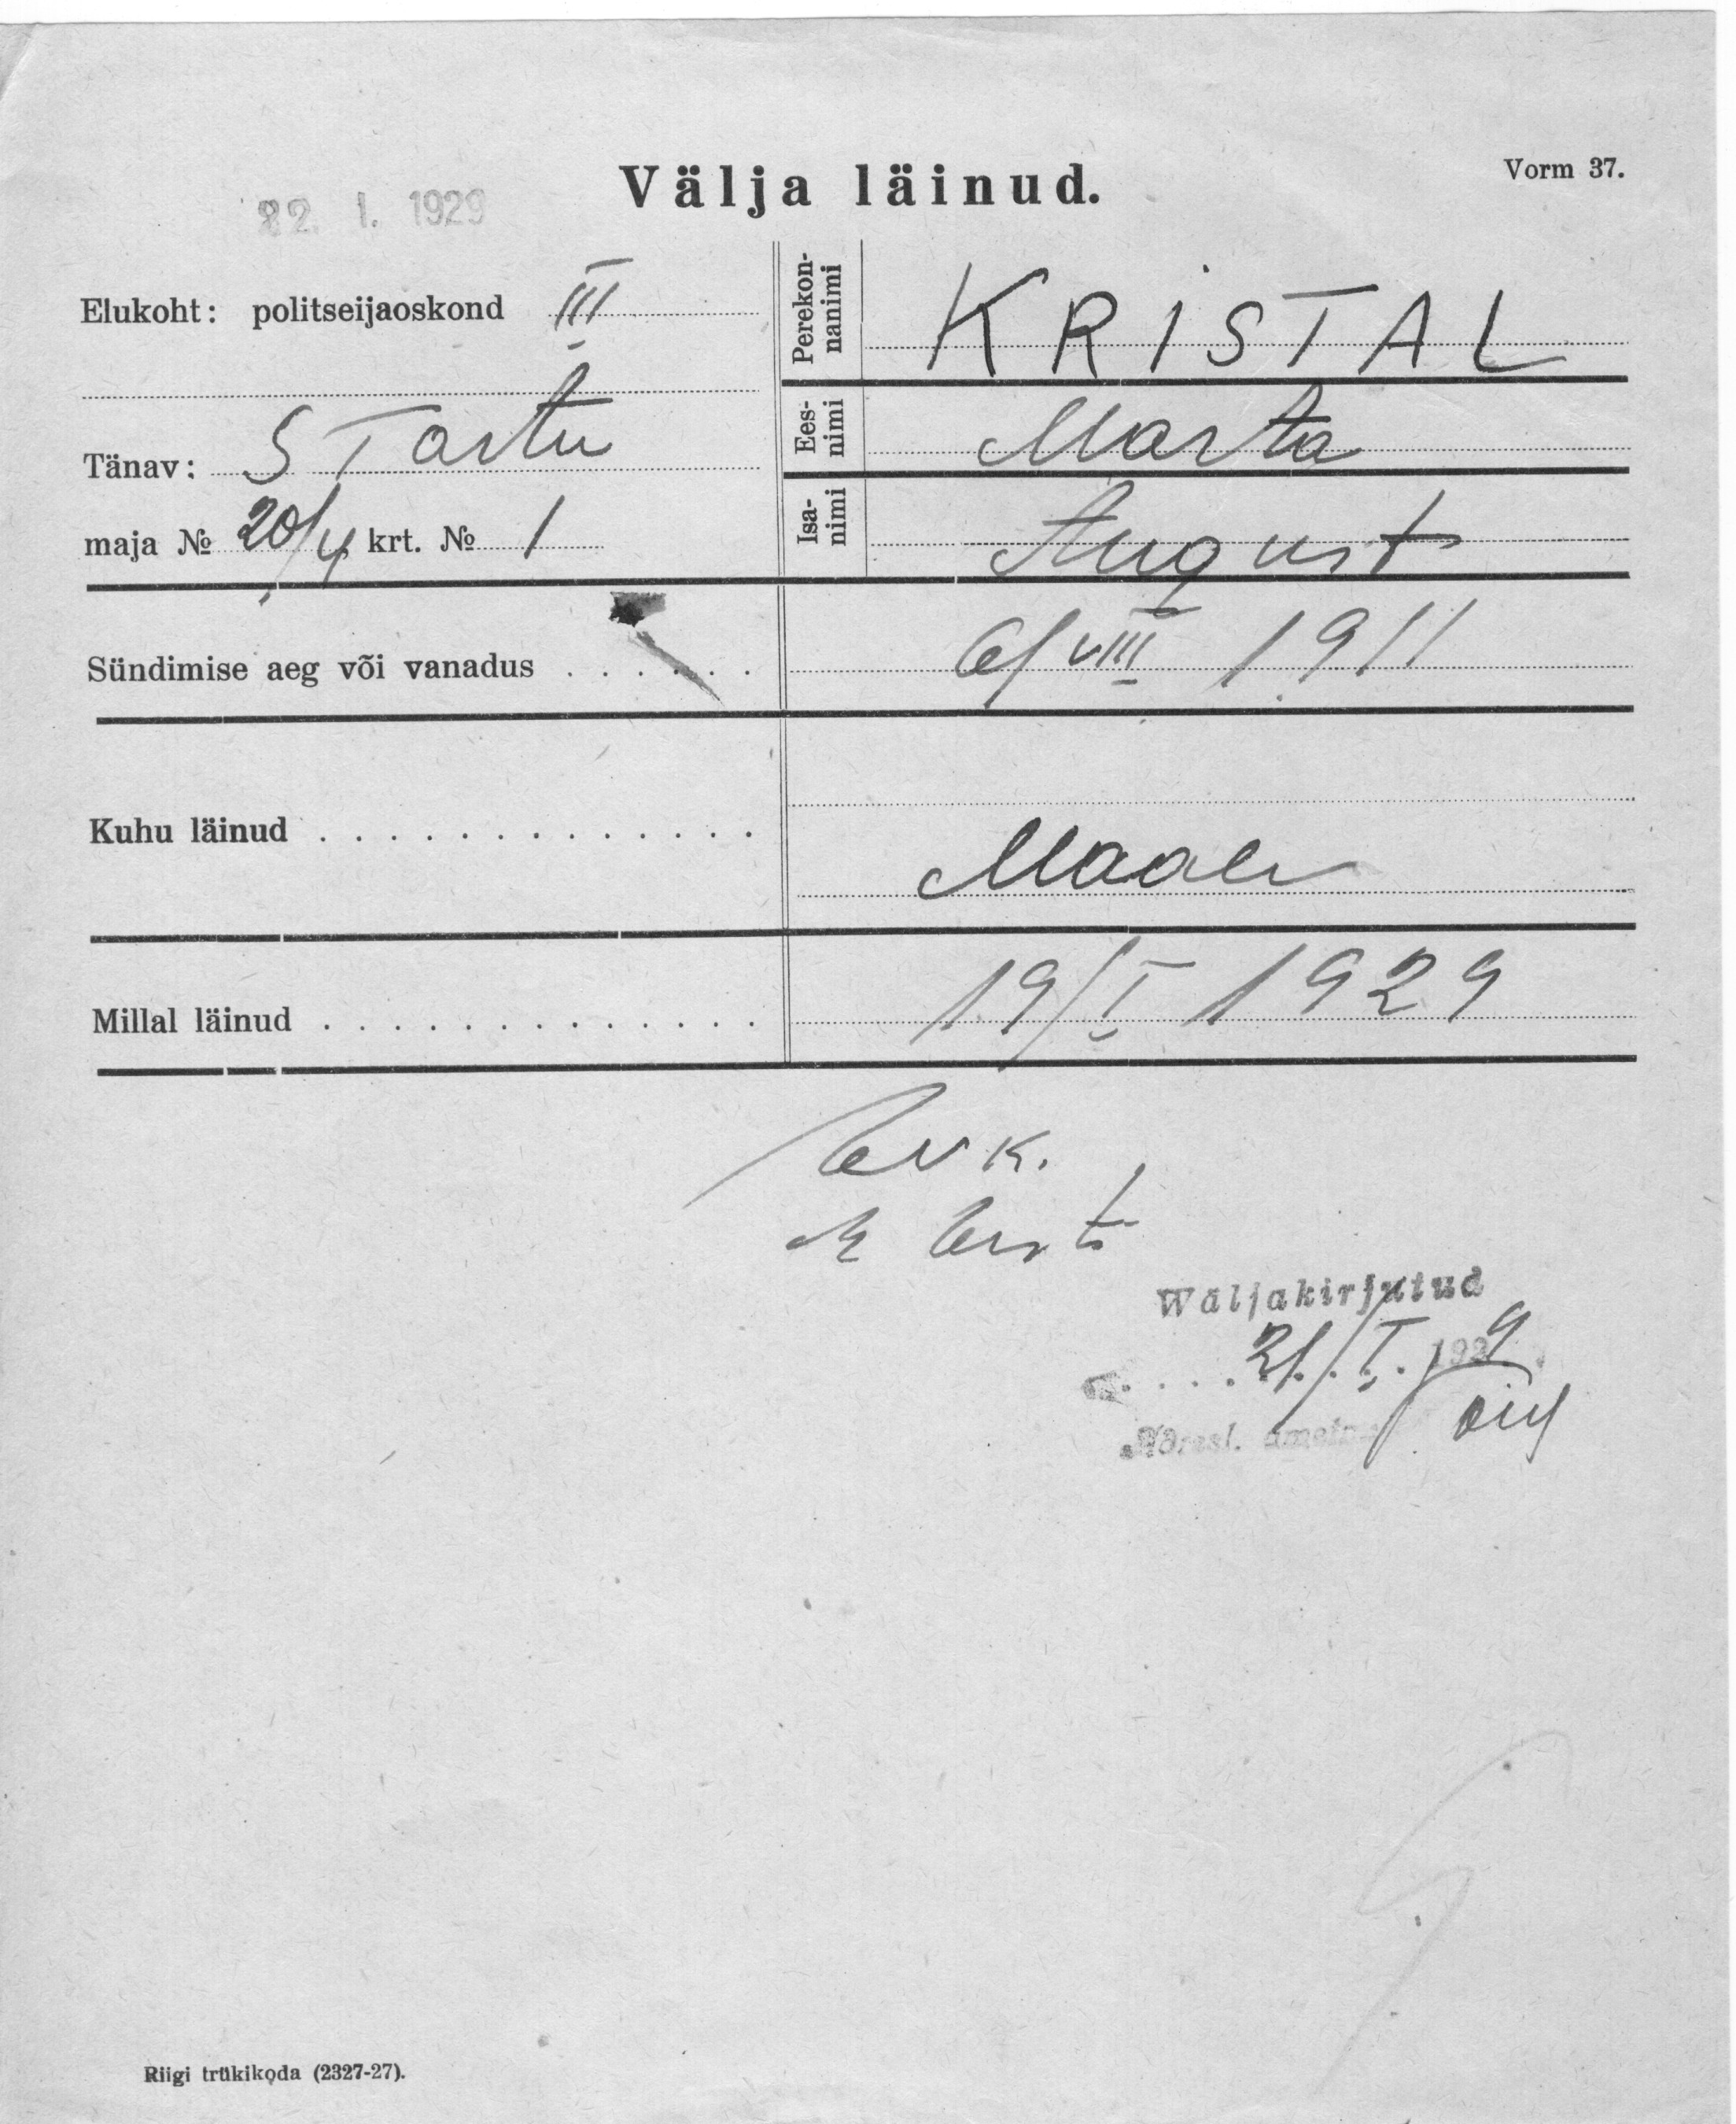 Vorm 37.
Välja läinud.
22. I. 1929
Elukoht: politseijaoskond III
Tänav: S Tartu
maja № 20/4 krt. № 1
Perekonnanimi KRISTAL
Eesnimi Marta
Isanimi August
Sündimise aeg või vanadus . . . . . . . 6/VIII 1911
Kuhu läinud . . . . . . . . . . . . . . Maale
Millal läinud . . . . . . . . . . . . . . 19/I 1929
Wäljakirjutud
21/I. 1929
Riigi trükikoda (2327-27).